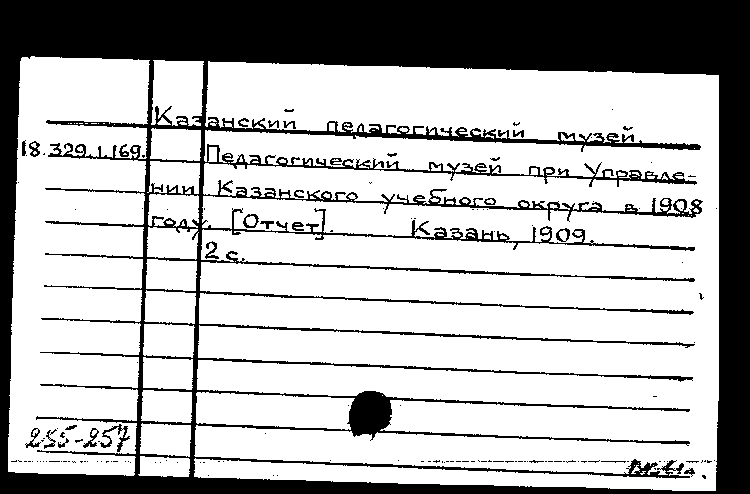 Казанский педагогический музей.
18.329.1.169.
Педагогический музей при Управле-
нии Казанского учебного округа в 1908
году. [Отчет]. Казань, 1909.
2 с.
255-257